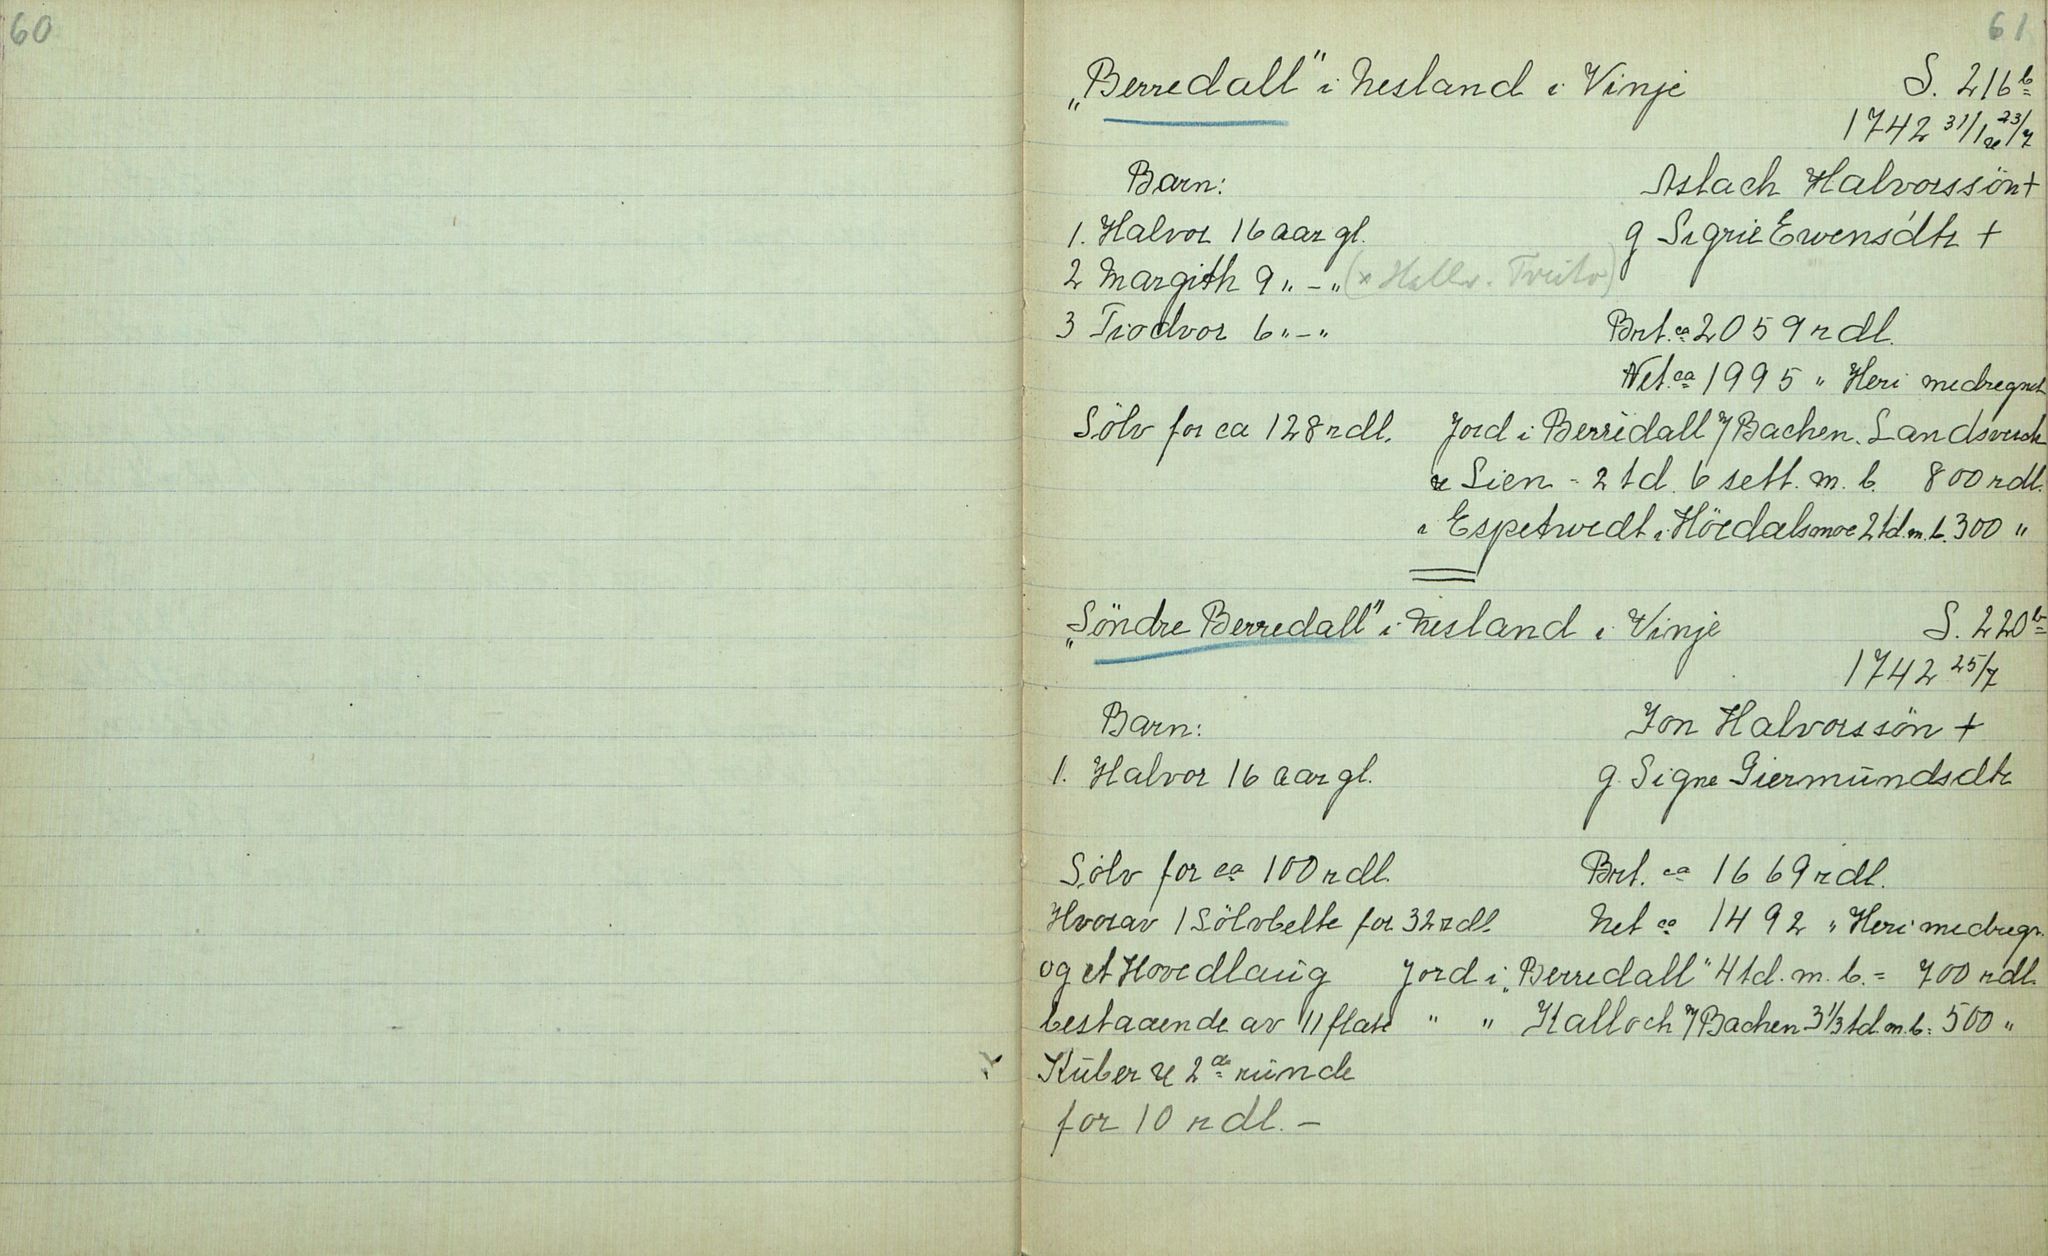 60
61
„Berredall" i Nesland i Vinje S. 216b
1742 31/1 & 23/7
Barn: Aslach Halvorssön +
1. Halvor 16 aar gl. g Sigrie Ewensdtr +
2 Margith 9 „ - „ (x Hallv. )
3 Tiodvor 6 „ - „ Brt. ca 2059 rdl.
Net. ca 1995 „ Heri medregnet
Sölv for ca 128 rdl. Jord i Berredall Bachen. Landsverk
& Lien = 2 td. 6 sett. m. b. 800 rdl.
i Espetvedt i Höidalsmoe 2 td. m. b. 300 „
„Söndre Berredall" i Nesland i Vinje S. 220b
1742 25/7
Barn: Jon Halvorssön +
1. Halvor 16 aar gl. g. Signe Giermundsdtr
Sölv for ca 100 rdl. Brt. ca 1669 rdl.
Hvorav 1 Sölvbelte for 32 rdl. Net ca 1492 „ Heri medregn.
og et Hovedlaug Jord i „Berredall" 4 td. m. b. = 700 rdl.
bestaaende av 11 flate " " Kalloch Bachen 3 1/3 td. m. b. = 500 „
Kuber & 2de runde
for 10 rdl. -